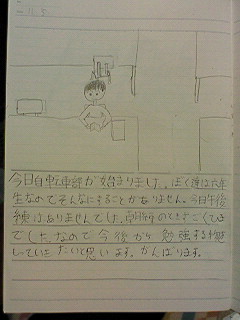 11.5
今日自転車部が始まりました。ぼく達は六年
生なのでそんなにすることがありません。今日午後
練はありませんでした。朝
でした。なので今後から勉強する
していきたいと思います。がんばります。